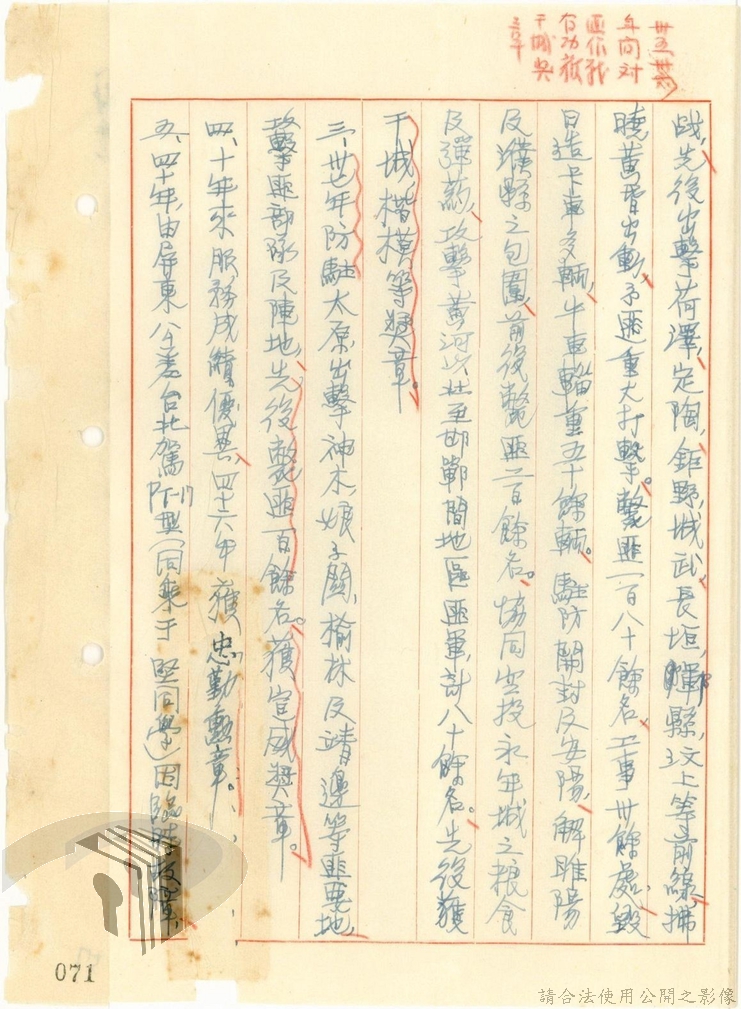 卅五卅六
年间对
匪作战
有功獲
干城奖
章
战,先後出擊荷澤,定陶,鉅野,城武,長垣,鄆縣,汶上等前線,拂
曉黃昏出動,予匪重大打擊。斃匪一百八十餘名,工事卅餘處,毀
日造卡車多輛,牛車輜重五十餘輛。駐防開封及安陽,解雎陽
及濮縣之包圍,前後斃匪二百餘名。協同空投永年城之粮食
及彈葯,攻擊黃河以北至邯鄲間地區匪軍,計八十餘名。先後獲
干城,楷模等獎章。
三、卅七年防駐太原出擊神木,娘子關,榆林及靖邊等匪要地,
擊匪部隊及陣地,先後斃匪百餘名。獲宣威獎章。
四、十年來服務成績優異,四十六年獲忠勤勳章。
五、四十年,由屏東公差台北駕PT-17型(同乘于 堅同學)因臨時故障,
071
請合法使用公開之影像